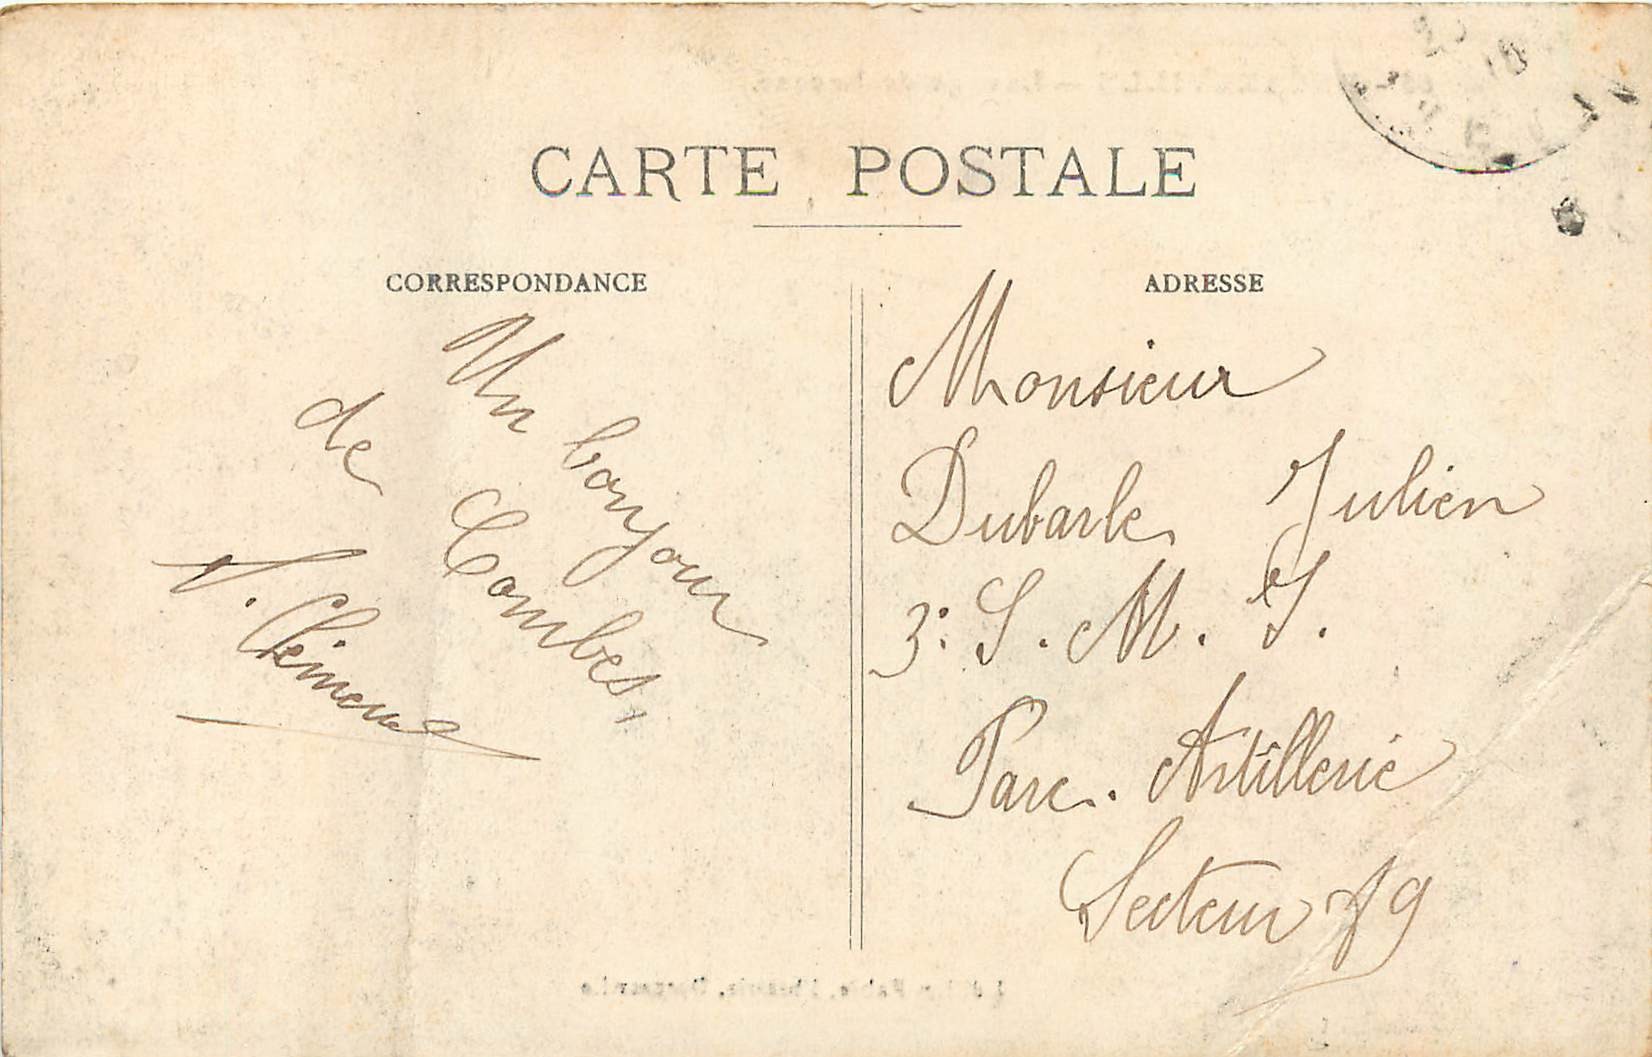 CARTE POSTALE
CORRESPONDANCE
Un bonjour
de Combes,
V. Clémence
ADRESSE
Monsieur
Dubarle Julien
3e S. M. I.
Parc. Artillerie
Secteur 19